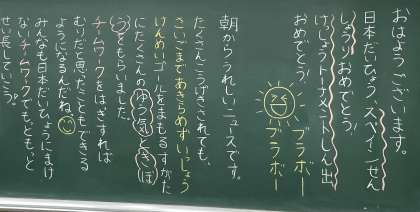 おはようございます。
日本だいひょう、スペインせん
しょうりおめでとう!
けっしょうトーナメントしん出
おめでとう!
ブラボー
ブラボー
朝からうれしいニュースです。
たくさんこうげきされても、
さいごまであきらめずいっしょう
けんめいゴールをまもるすがた
にたくさんのゆう気ときぼ
うをもらいました。
チームワークをはっきすれば
むりだと思ったこともできる
ようになるんだね
みんなも日本だいひょうにまけ
ないチームワークでもっともっと
せい長していこう。